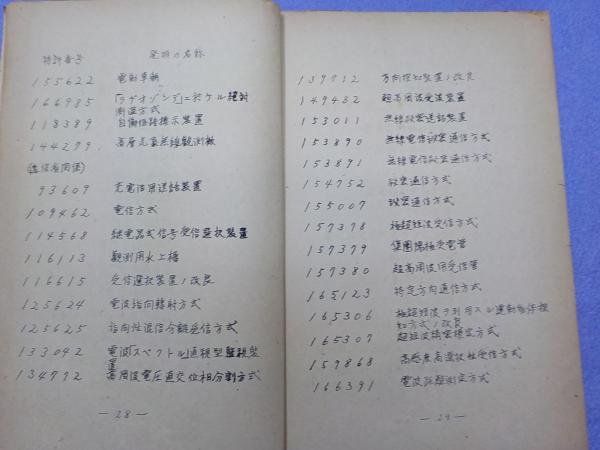 特許番号 発明ノ名称
155622 電射車輌
166985 「ラヂオゾンデ」ニ於ケル絶対
測温方式
118389 自働径路標示装置
144279 高層気象無線観測機
93609 光電話用送話装置
109462 電信方式
114568 継電器式信号受信選択装置
116113 観測用水上檣
116615 受信選択装置ノ改良
125624 電波指向輻射方式
125625 指向性混信分離受信方式
133042 電波「スペクトル」直視型監視装
置
134772 高周波電圧直交位相分割方式
— 28 —
139712 方向探知装置ノ改良
149432 超高周波受波装置
153011 無線秘密送話装置
153890 無線電信秘密通信方式
153891 無線電信秘密通信方式
154752 秘密通信方式
155007 秘密通信方式
157378 極超短波受信方式
157379 集團陽極受電管
157380 超高周波用受信管
165123 特定方向通信方式
165306 極超短波ヲ利用スル運動物体探
知方式ノ改良
165307 超短波精密標定方式
159868 高感度高選択性受信方式
166391 電波距離測定方式
— 29 —